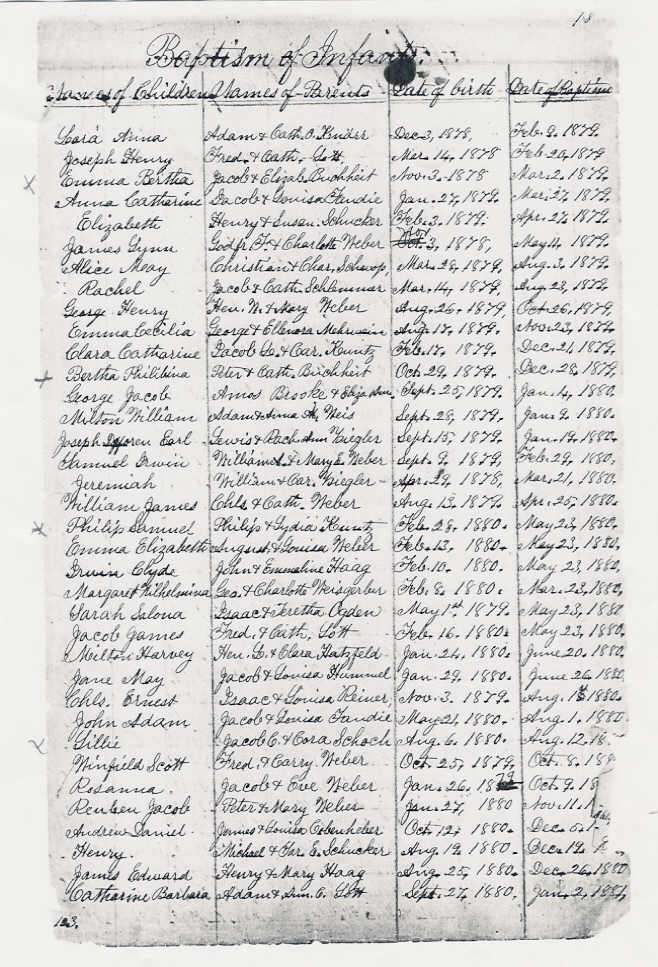 18
Baptism of Infants.
Names of Children Names of Parents Date of birth Date of Baptism
Cora Anna Adam & Cath. O. Dec. 3, 1878. Feb. 9. 1879.
Joseph Henry Fred. & Cath. Gott Mar. 14, 1878 Feb. 20, 1879
Emma Bertha Jacob & Elizab. Buchheit Nov. 3. 1878 Mar. 2. 1879.
Anna Catharine Jacob & Louisa Faudie Jan. 27, 1879. Mar. 27, 1879.
Elizabeth Henry & Susan. Schucker Feb. 3. 1879. Apr. 27, 1879.
James Lynn Godfr. F. & Charlotte Weber Nov. 3, 1878, May 4, 1879.
Alice May Christian & Char. Mar. 28, 1879, Aug. 3, 1879.
Rachel Jacob & Cath. Schlemmer Mar. 14, 1879. Aug. 23, 1879.
George Henry Hen. W. & Mary Weber Aug. 26. 1879, Oct. 26, 1879,
Emma Cecilia George & Ellenora Mehrwein Aug. 17, 1879. Nov. 23, 1879.
Clara Catharine Jacob G. & Car. Kuntz Feb. 17. 1879. Dec. 21, 1879.
Bertha Philibina Peter & Cath. Buchheit Oct. 29, 1879. Dec. 28, 1879.
George Jacob Amos Brooke & Eliza Ann. Sept. 25, 1879 Jan. 4, 1880.
Milton William Adam & Anna Weis Sept. 28, 1879. Jan. 9. 1880.
Joseph Earl Lewis & Rach. Ann Ziegler Sept. 15, 1879 Jan. 19. 1880.
Samuel Irwin William & Mary E. Weber Sept. 9, 1879. Feb. 29, 1880.
Jeremiah William & Car. Ziegler Apr. 29, 1878, Mar. 21, 1880.
William James Chls. & Cath. Weber Aug. 13, 1879 Apr. 25, 1880.
Philip Samuel Philip & Lydia Kuntz Feb. 28. 1880. May 23, 1880.
Emma Elizabeth August. & Louisa Weber Feb. 13, 1880. May 23, 1880.
Irwin Clyde John & Emmeline Haag Feb. 10. 1880. May 23, 1880.
Margaret Wilhelmina Geo. & Charlotte Weisgerber Feb. 8. 1880. Mar. 23, 1880.
Sarah Selona Isaac & Teretha Ogden May 1st 1879. May 23, 1880
Jacob James Fred. & Cath. Gott Feb. 16. 1880. May 23, 1880.
Milton Harvey Hen. G. & Clara Hatzfeld Jan. 24, 1880. June 20. 1880.
Jane May Jacob & Louisa Hummel Jan. 29. 1880. June 26 1880.
Chls. Ernest Isaac & Louisa Reiner, Nov. 3. 1879. Aug. 1st 1880.
John Adam Jacob & Louisa Faudie May 21, 1880. Aug. 1. 1880.
Lillie Jacob C. & Cora Schoch Aug. 6. 1880. Aug. 12. 18
Winfield Scott Fred. & Carry. Weber Oct. 25, 1879, Oct. 8. 188
Rosanna. Jacob & Eve Weber Jan. 26. 1879 Oct. 9. 18
Reuben Jacob Peter & Mary Weber Jan. 27, 1880 Nov. 11.
Andrew Daniel James & Louisa Oct. 12, 1880. Dec. 5.
Henry. Michael & Har. E. Schucker Aug. 19. 1880. Dec. 12.
James Edward Henry & Mary Haag Aug. 25, 1880. Dec. 26, 1880
Catharine Barbara Adam & C. Gött Sept. 27, 1880. Jan. 2, 1881,
123.